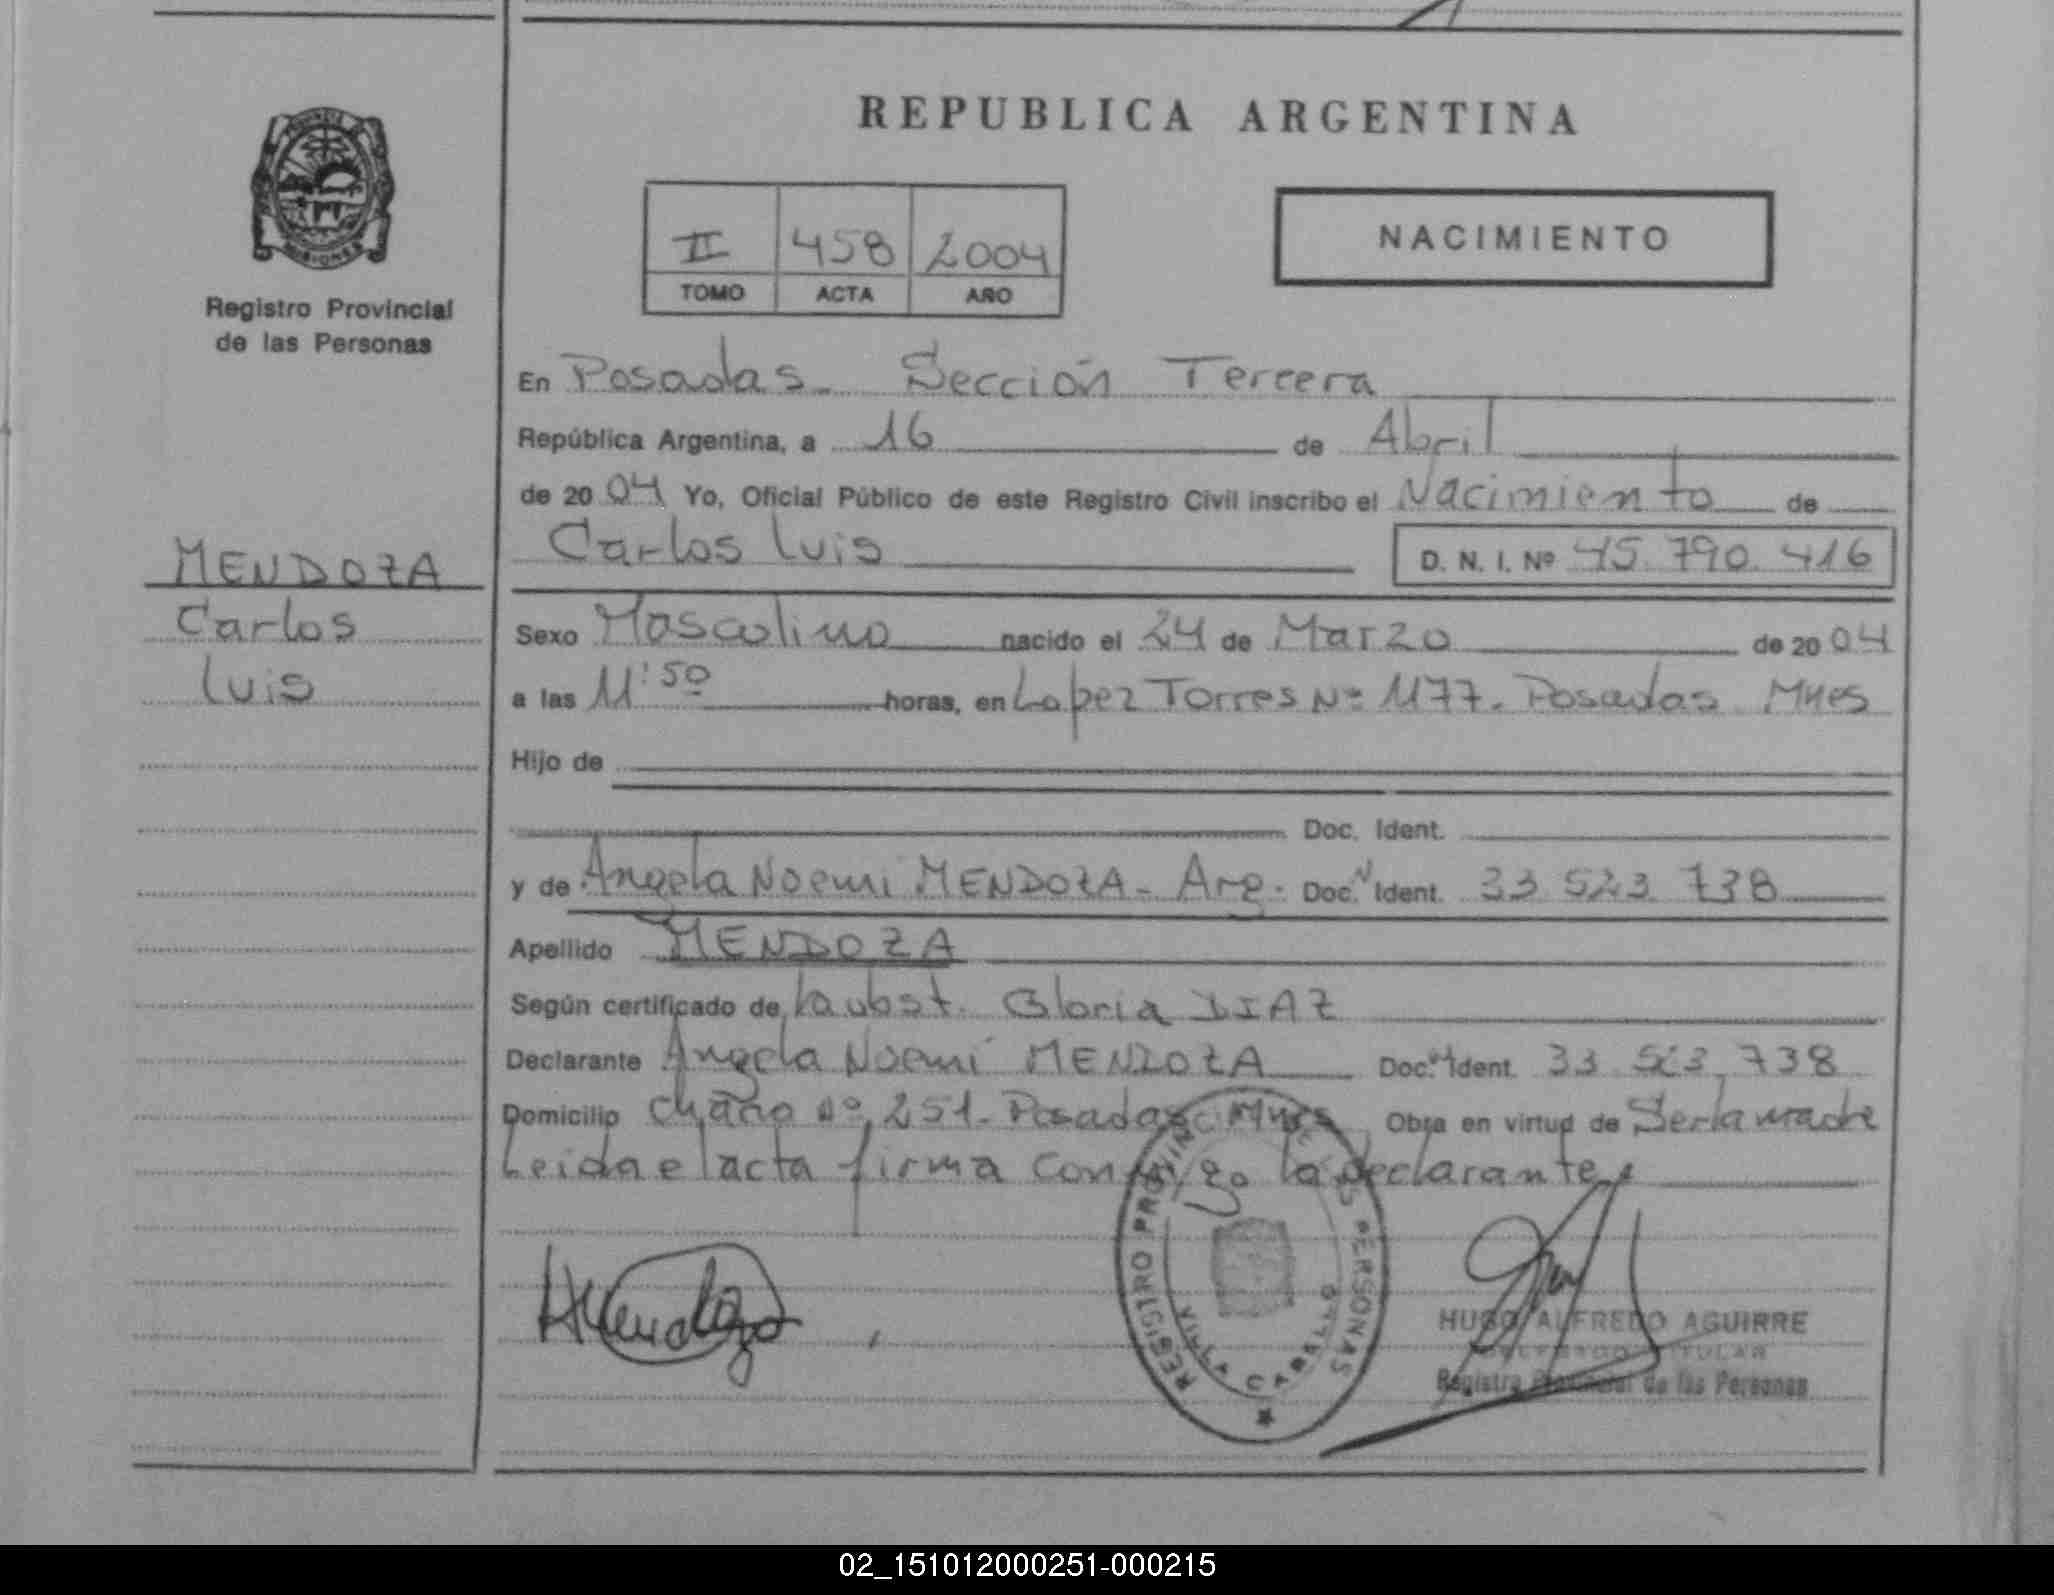 REPUBLICA ARGENTINA
PROVINCIA DE
MISIONES
Registro Provincial
de las Personas
II 458 2004
TOMO ACTA AÑO
NACIMIENTO
En Posadas - Sección Tercera
República Argentina, a 16 de Abril
de 2004 Yo, Oficial Público de este Registro Civil inscribo el Nacimiento de
Carlos Luis D. N. I. Nº 45.790.416
MENDOZA
Carlos
Luis
Sexo Masculino nacido el 24 de Marzo de 2004
a las 11:50 horas, en Lopez Torres Nº 1177. Posadas Mnes
Hijo de
Doc. Ident.
y de Angela Noemi MENDOZA - Arg. Doc. Ident. 33 523 738
Apellido MENDOZA
Según certificado de la obst. Gloria DIAZ
Declarante Angela Noemí MENDOZA Doc. Ident. 33 523 738
Domicilio Nº 251 - Posadas Mnes Obra en virtud de Ser la madre
Leida el acta firma conmigo la declarante
Mendoza
REGISTRO PROVINCIAL DE LAS PERSONAS
VILLA CABELLO
HUGO ALFREDO AGUIRRE
DELEGADO TITULAR
Registro Provincial de las Personas
02_151012000251-000215